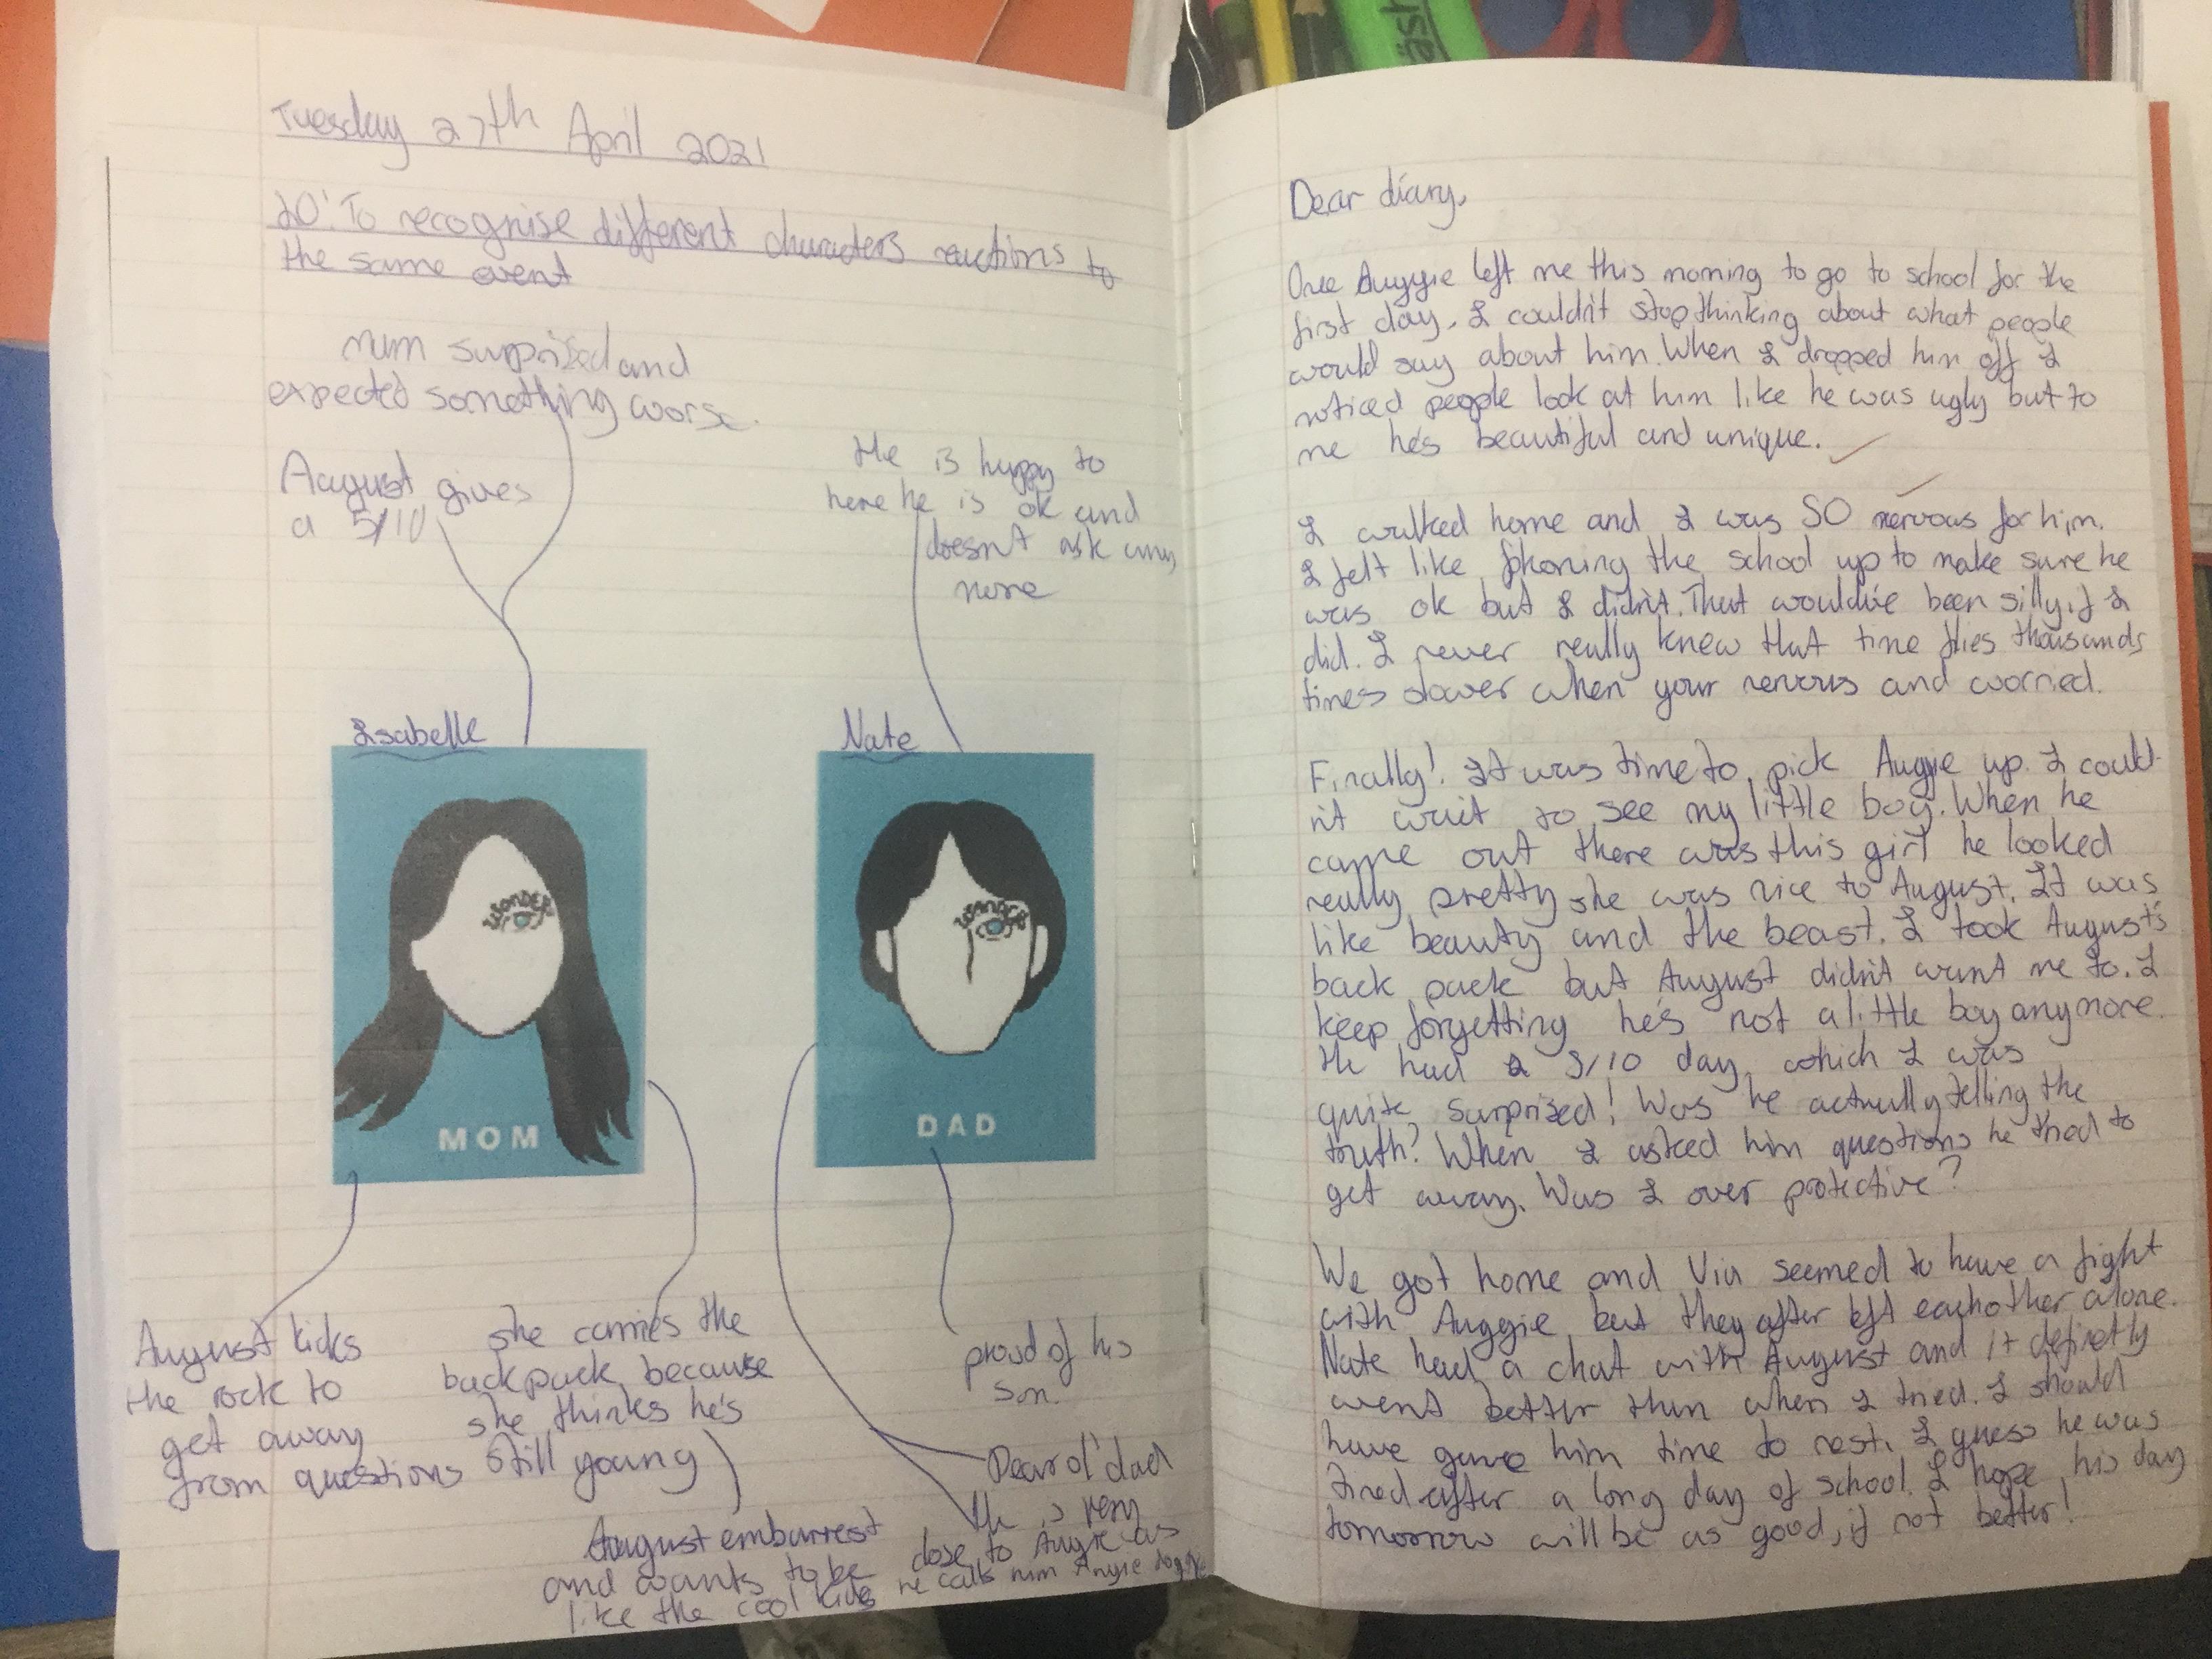 Tuesday 27th April 2021
LO: To recognise different characters reactions to
the same event
mum surprised and
expected something worse.
August gives
a 5/10
He is happy to
here he is ok and
doesn't ask any
more
Isabelle
Nate
WONDER
MOM
WONDER
DAD
August kicks
the rock to
get away
from questions
she carries the
backpack because
she thinks he's
still young
August embarrest
and wants to be
like the cool kids
proud of his
son.
Dear ol' dad
He is very
close to Augie as
he calls him Augie doggie
Dear diary,
Once Auggie left me this morning to go to school for the
first day, I couldn't stop thinking about what people
would say about him. When I dropped him off I
noticed people look at him like he was ugly but to
me he's beautiful and unique.
I walked home and I was SO nervous for him.
I felt like phoning the school up to make sure he
was ok but I didn't. That would've been silly if I
did. I never really knew that time flies thousands
times slower when your nervous and worried.
Finally! It was time to pick Auggie up. I could-
n't wait to see my little boy. When he
came out there was this girl he looked
really pretty she was nice to August. It was
like beauty and the beast. I took August's
back pack but August didn't want me to. I
keep forgetting he's not a little boy anymore.
He had a 5/10 day, which I was
quite surprised! Was he actually telling the
truth? When I asked him questions he tried to
get away. Was I over protective?
We got home and Via seemed to have a fight
with Auggie but they after left eachother alone.
Nate had a chat with August and it definetly
went better than when I tried. I should
have gave him time to rest. I guess he was
tired after a long day of school. I hope his day
tomorrow will be as good, if not better!